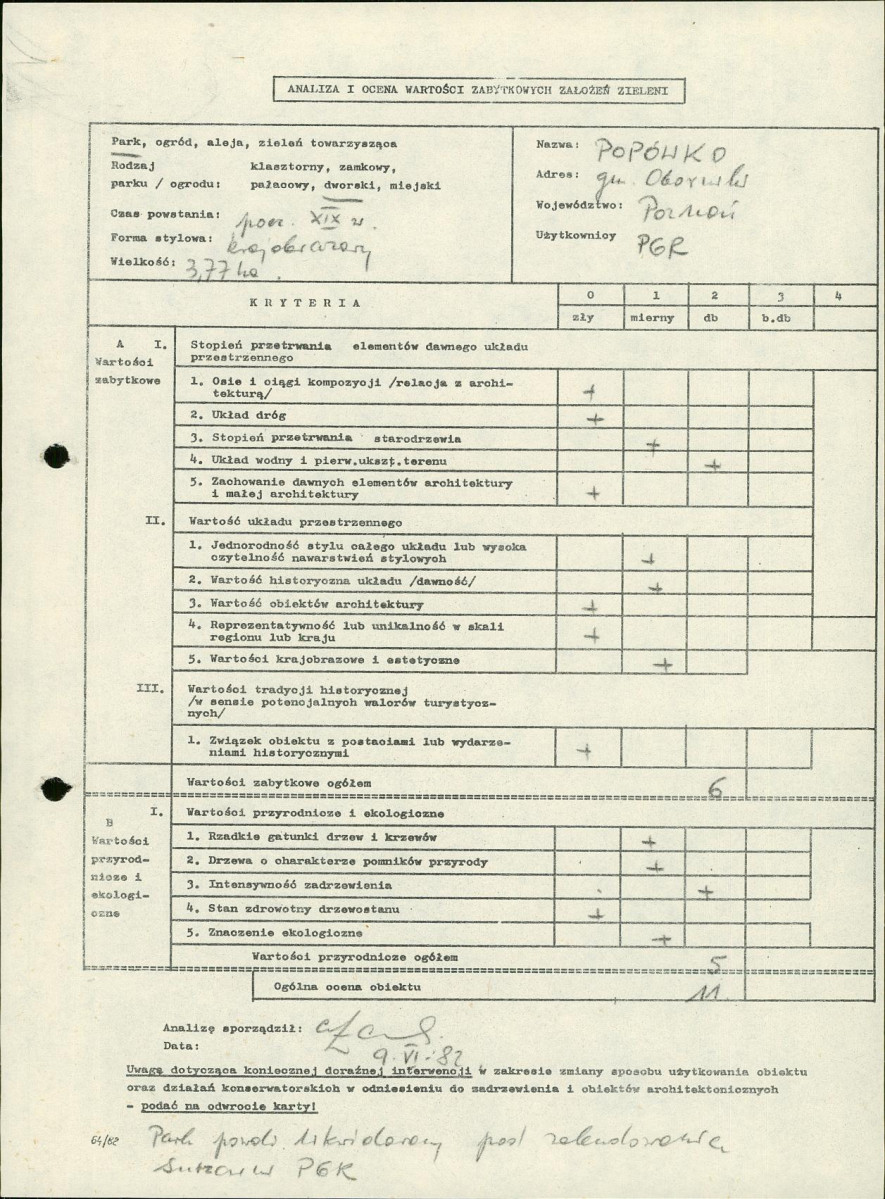 ANALIZA I OCENA WARTOŚCI ZABYTKOWYCH ZAŁOŻEŃ ZIELENI
Park, ogród, aleja, zieleń towarzysząca
Rodzaj klasztorny, zamkowy,
parku / ogrodu: pałacowy, dworski, miejski
Czas powstania: pocz. XIX w.
Forma stylowa: krajobrazowy
Wielkość: 3,77 ha.
Nazwa: POPÓWKO
Adres: gm. Oborniki
Województwo: Poznań
Użytkownicy PGR
KRYTERIA 0 1 2 3 4
zły mierny db b.db
A I. Stopień przetrwania elementów dawnego układu
Wartości przestrzennego
zabytkowe 1. Osie i ciągi kompozycji /relacja z archi-
tekturą/ +
2. Układ dróg +
3. Stopień przetrwania starodrzewia +
4. Układ wodny i pierw.ukszt.terenu +
5. Zachowanie dawnych elementów architektury
i małej architektury +
II. Wartość układu przestrzennego
1. Jednorodność stylu całego układu lub wysoka
czytelność nawarstwień stylowych +
2. Wartość historyczna układu /dawność/ +
3. Wartość obiektów architektury +
4. Reprezentatywność lub unikalność w skali
regionu lub kraju +
5. Wartości krajobrazowe i estetyczne +
III. Wartości tradycji historycznej
/w sensie potencjalnych walorów turystycz-
nych/
1. Związek obiektu z postaciami lub wydarze-
niami historycznymi +
Wartości zabytkowe ogółem 6
B I. Wartości przyrodnicze i ekologiczne
Wartości 1. Rzadkie gatunki drzew i krzewów +
przyrod- 2. Drzewa o charakterze pomników przyrody +
nicze i 3. Intensywność zadrzewienia +
ekologi- 4. Stan zdrowotny drzewostanu +
czne 5. Znaczenie ekologiczne +
Wartości przyrodnicze ogółem 5
Ogólna ocena obiektu 11.
Analizę sporządził:
Data: 9.VI.82
Uwagę dotyczącą koniecznej doraźnej interwencji w zakresie zmiany sposobu użytkowania obiektu
oraz działań konserwatorskich w odniesieniu do zadrzewienia i obiektów architektonicznych
- podać na odwrocie karty!
64/82 Park likwidowany zabudowania
PGR